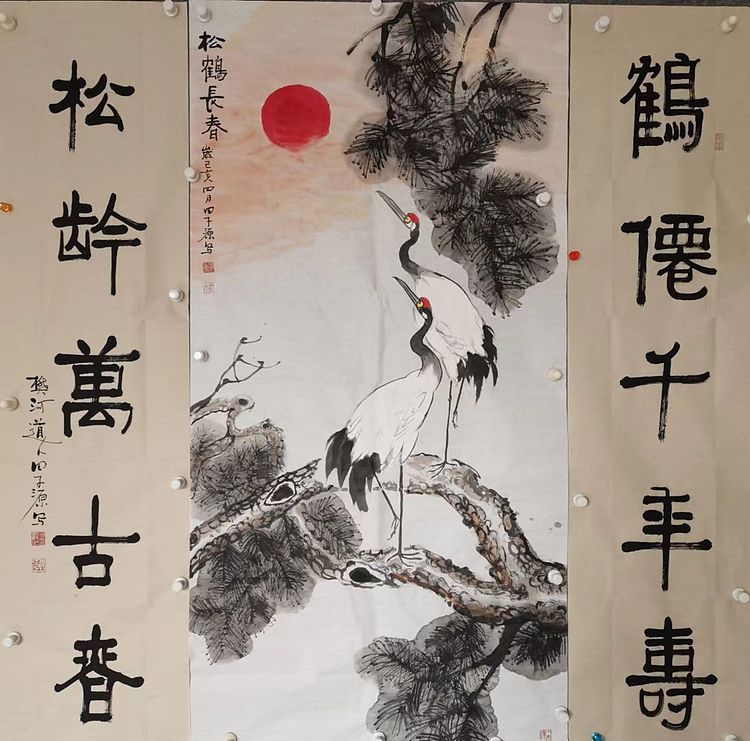 鶴僊千年壽
松鶴長春
歲己亥四月田子源写
松龄萬古春
樊河道人田子源写